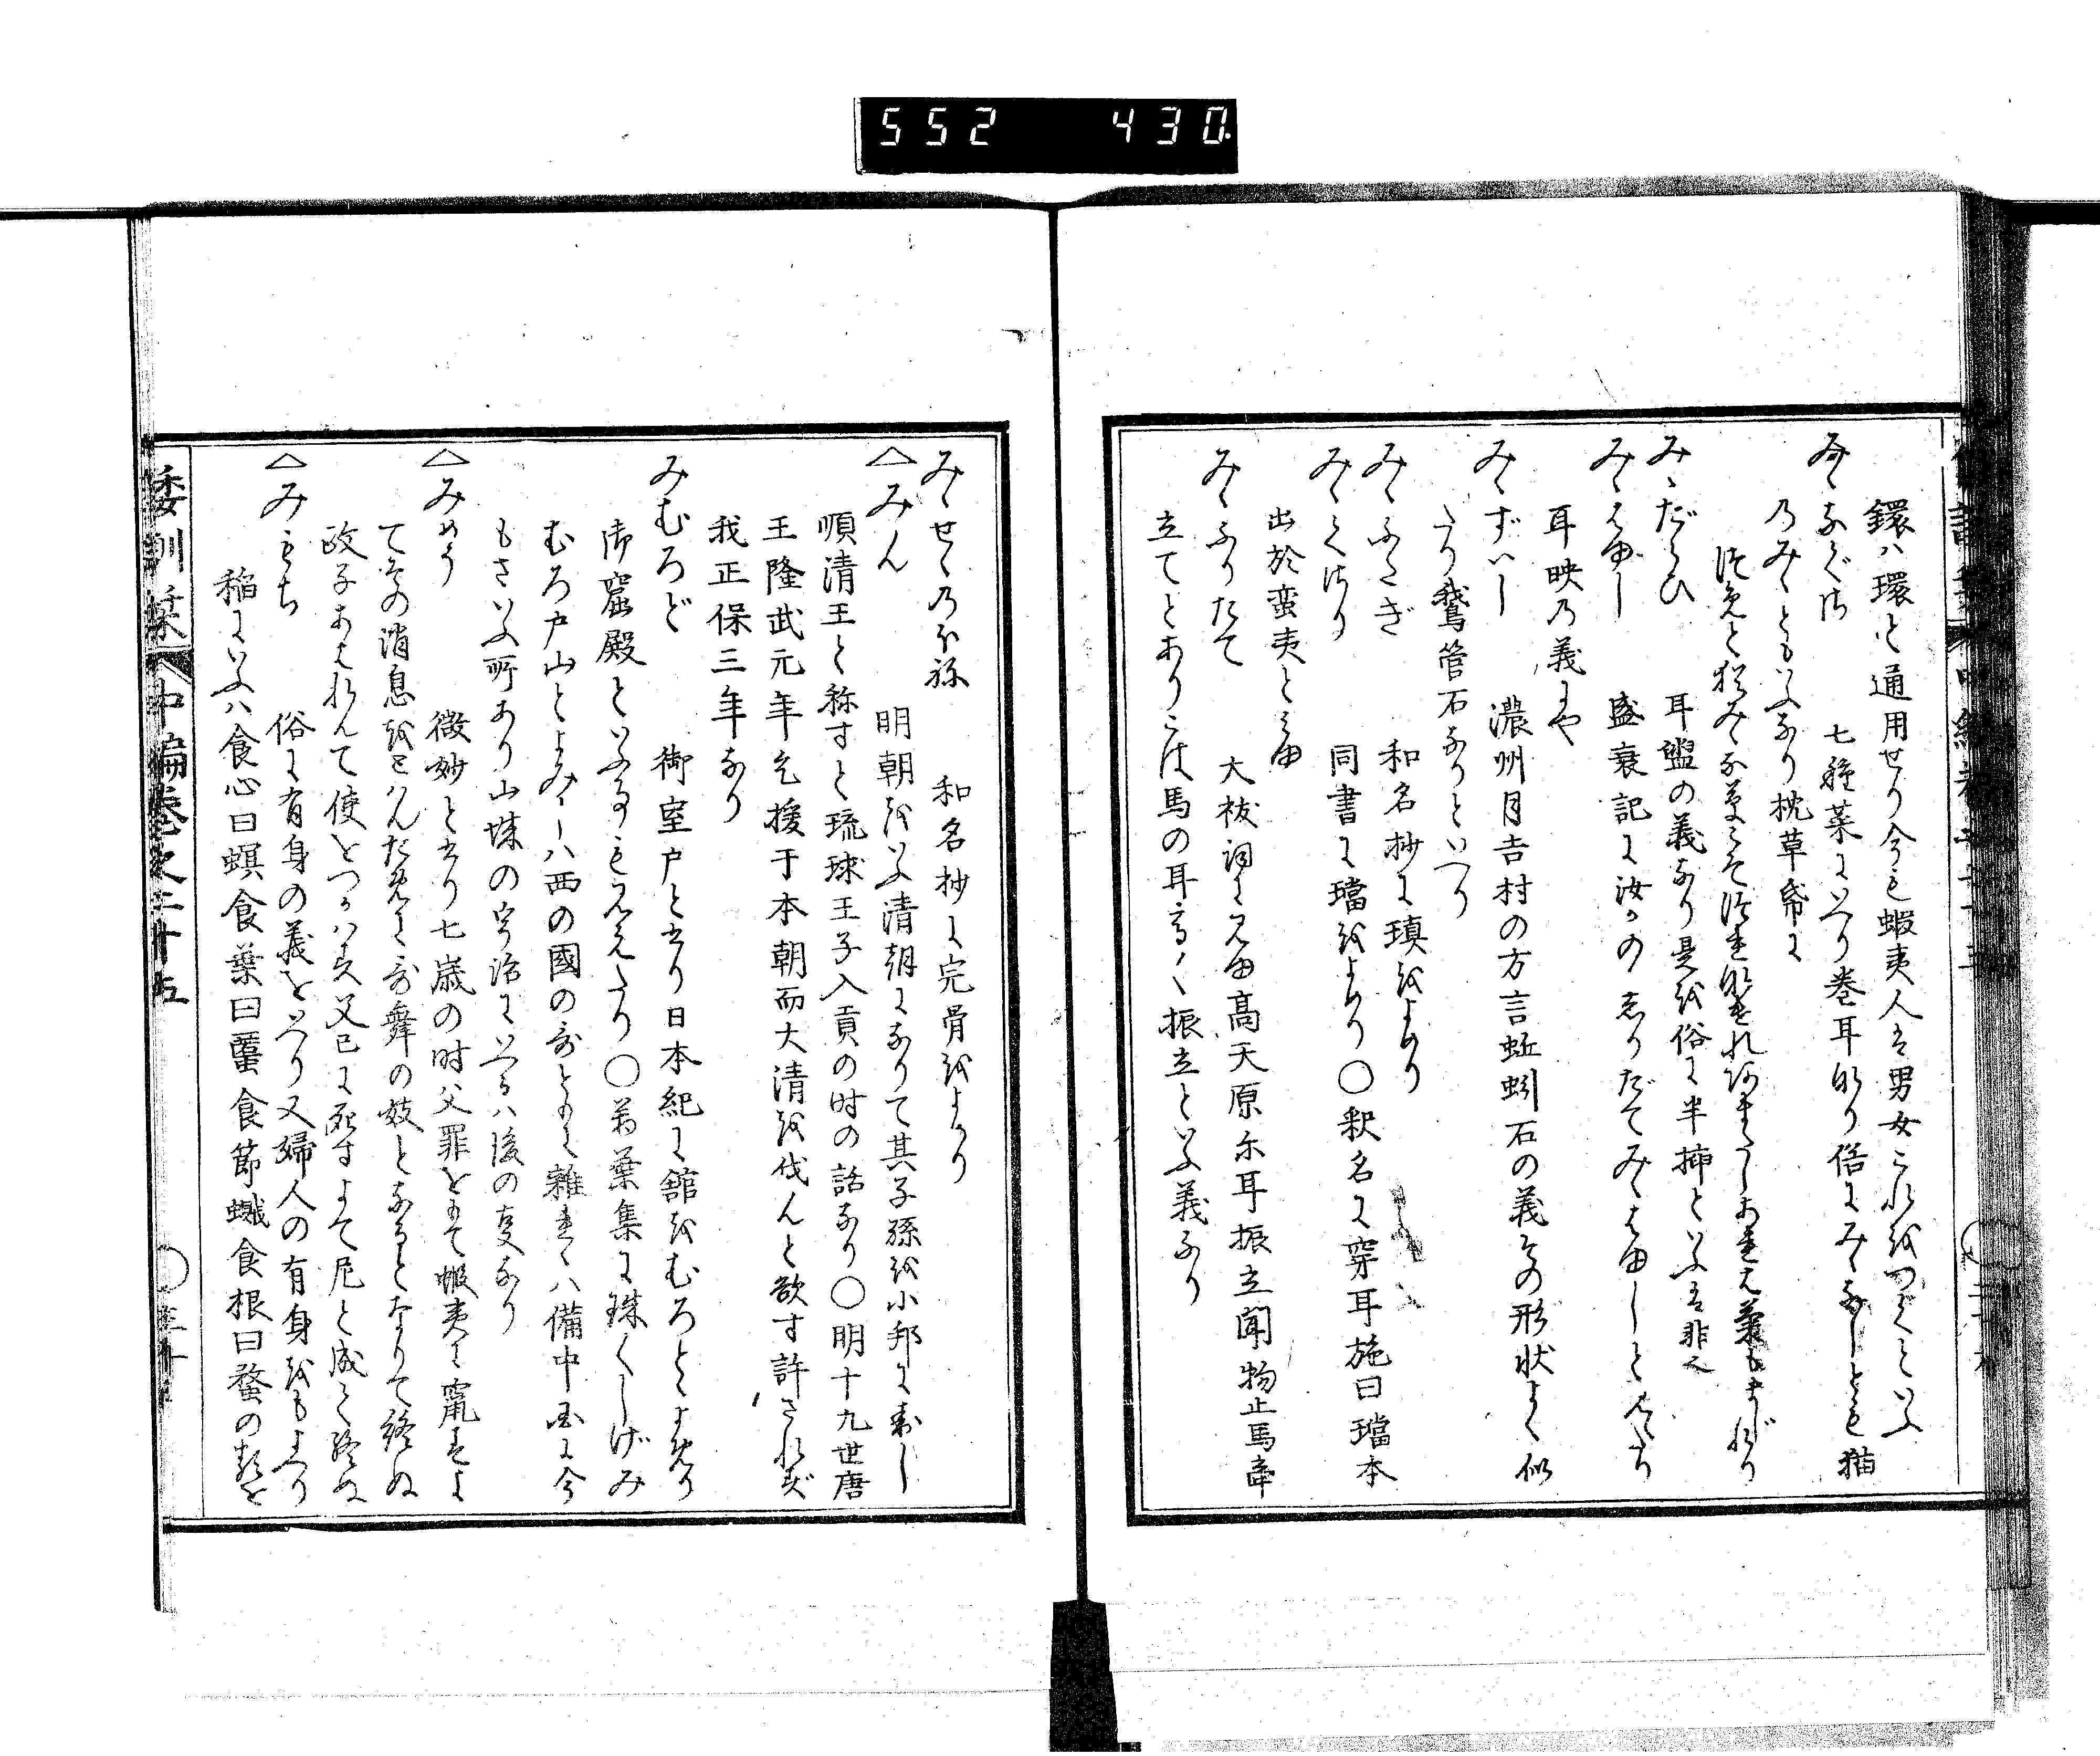 552 430
鐶ハ環と通用せり今も蝦夷人は男女これをつくといふ
みゝなぐさ 七種菜にいへり巻耳なり俗にみゝなしとも猫
のみゝともいふなり枕草帋に
つめと猶みゝな草こそつれなけれあまたしあれは菊もまじれり
みゝだらひ 耳盥の義なり是を俗に半挿といふは非也
みゝはゆし 盛衰記に汝かのしりだてみゝはゆしと見えたり
耳映の義にや
みゝずいし 濃州月吉村の方言蚯蚓石の義その形状よく似
たり鵞管石なりといへり
みゝふさぎ 和名抄に瑱をよめり
みゝくさり 同書に璫をよめり○釈名に穿耳施曰璫本
出於蛮夷と見ゆ
みゝふりたて 大祓詞に見ゆ高天原尓耳振立聞物止馬牽
立てとありこは馬の耳高く振立といふ義なり
みゝせゝのほね 和名抄に完骨をよめり
△みん 明朝をいふ清朝になりて其子孫を小邦に封し
順清王と称すと琉球王子入貢の時の話なり○明十九世唐
王隆武元年乞援于本朝而大清を伐んと欲す許されず
我正保三年なり
みむろど 御室戸と書り日本紀に館をむろとよめり
御窟殿といふ事も見えたり○万葉集に珠くしげみ
むろ戸山とよみしハ西の國の哥とみえ雑書ハ備中国に今
もさいふ所あり山城の宇治にいへるハ後の事なり
△みめう 微妙と書り七歳の時父罪をもて蝦夷に竄せら
て父の消息をとハんために哥舞の妓となるとなりて終ぬ
政子あはれんて使をつかハす父已に死すよて尼と成て終ぬ
△みもち 俗に有身の義をいへり又婦人の有身をもよへり
稲にいふハ食心曰螟食葉曰蟘食節蠈食根曰蟊の類を
倭訓栞 中編巻之二十五